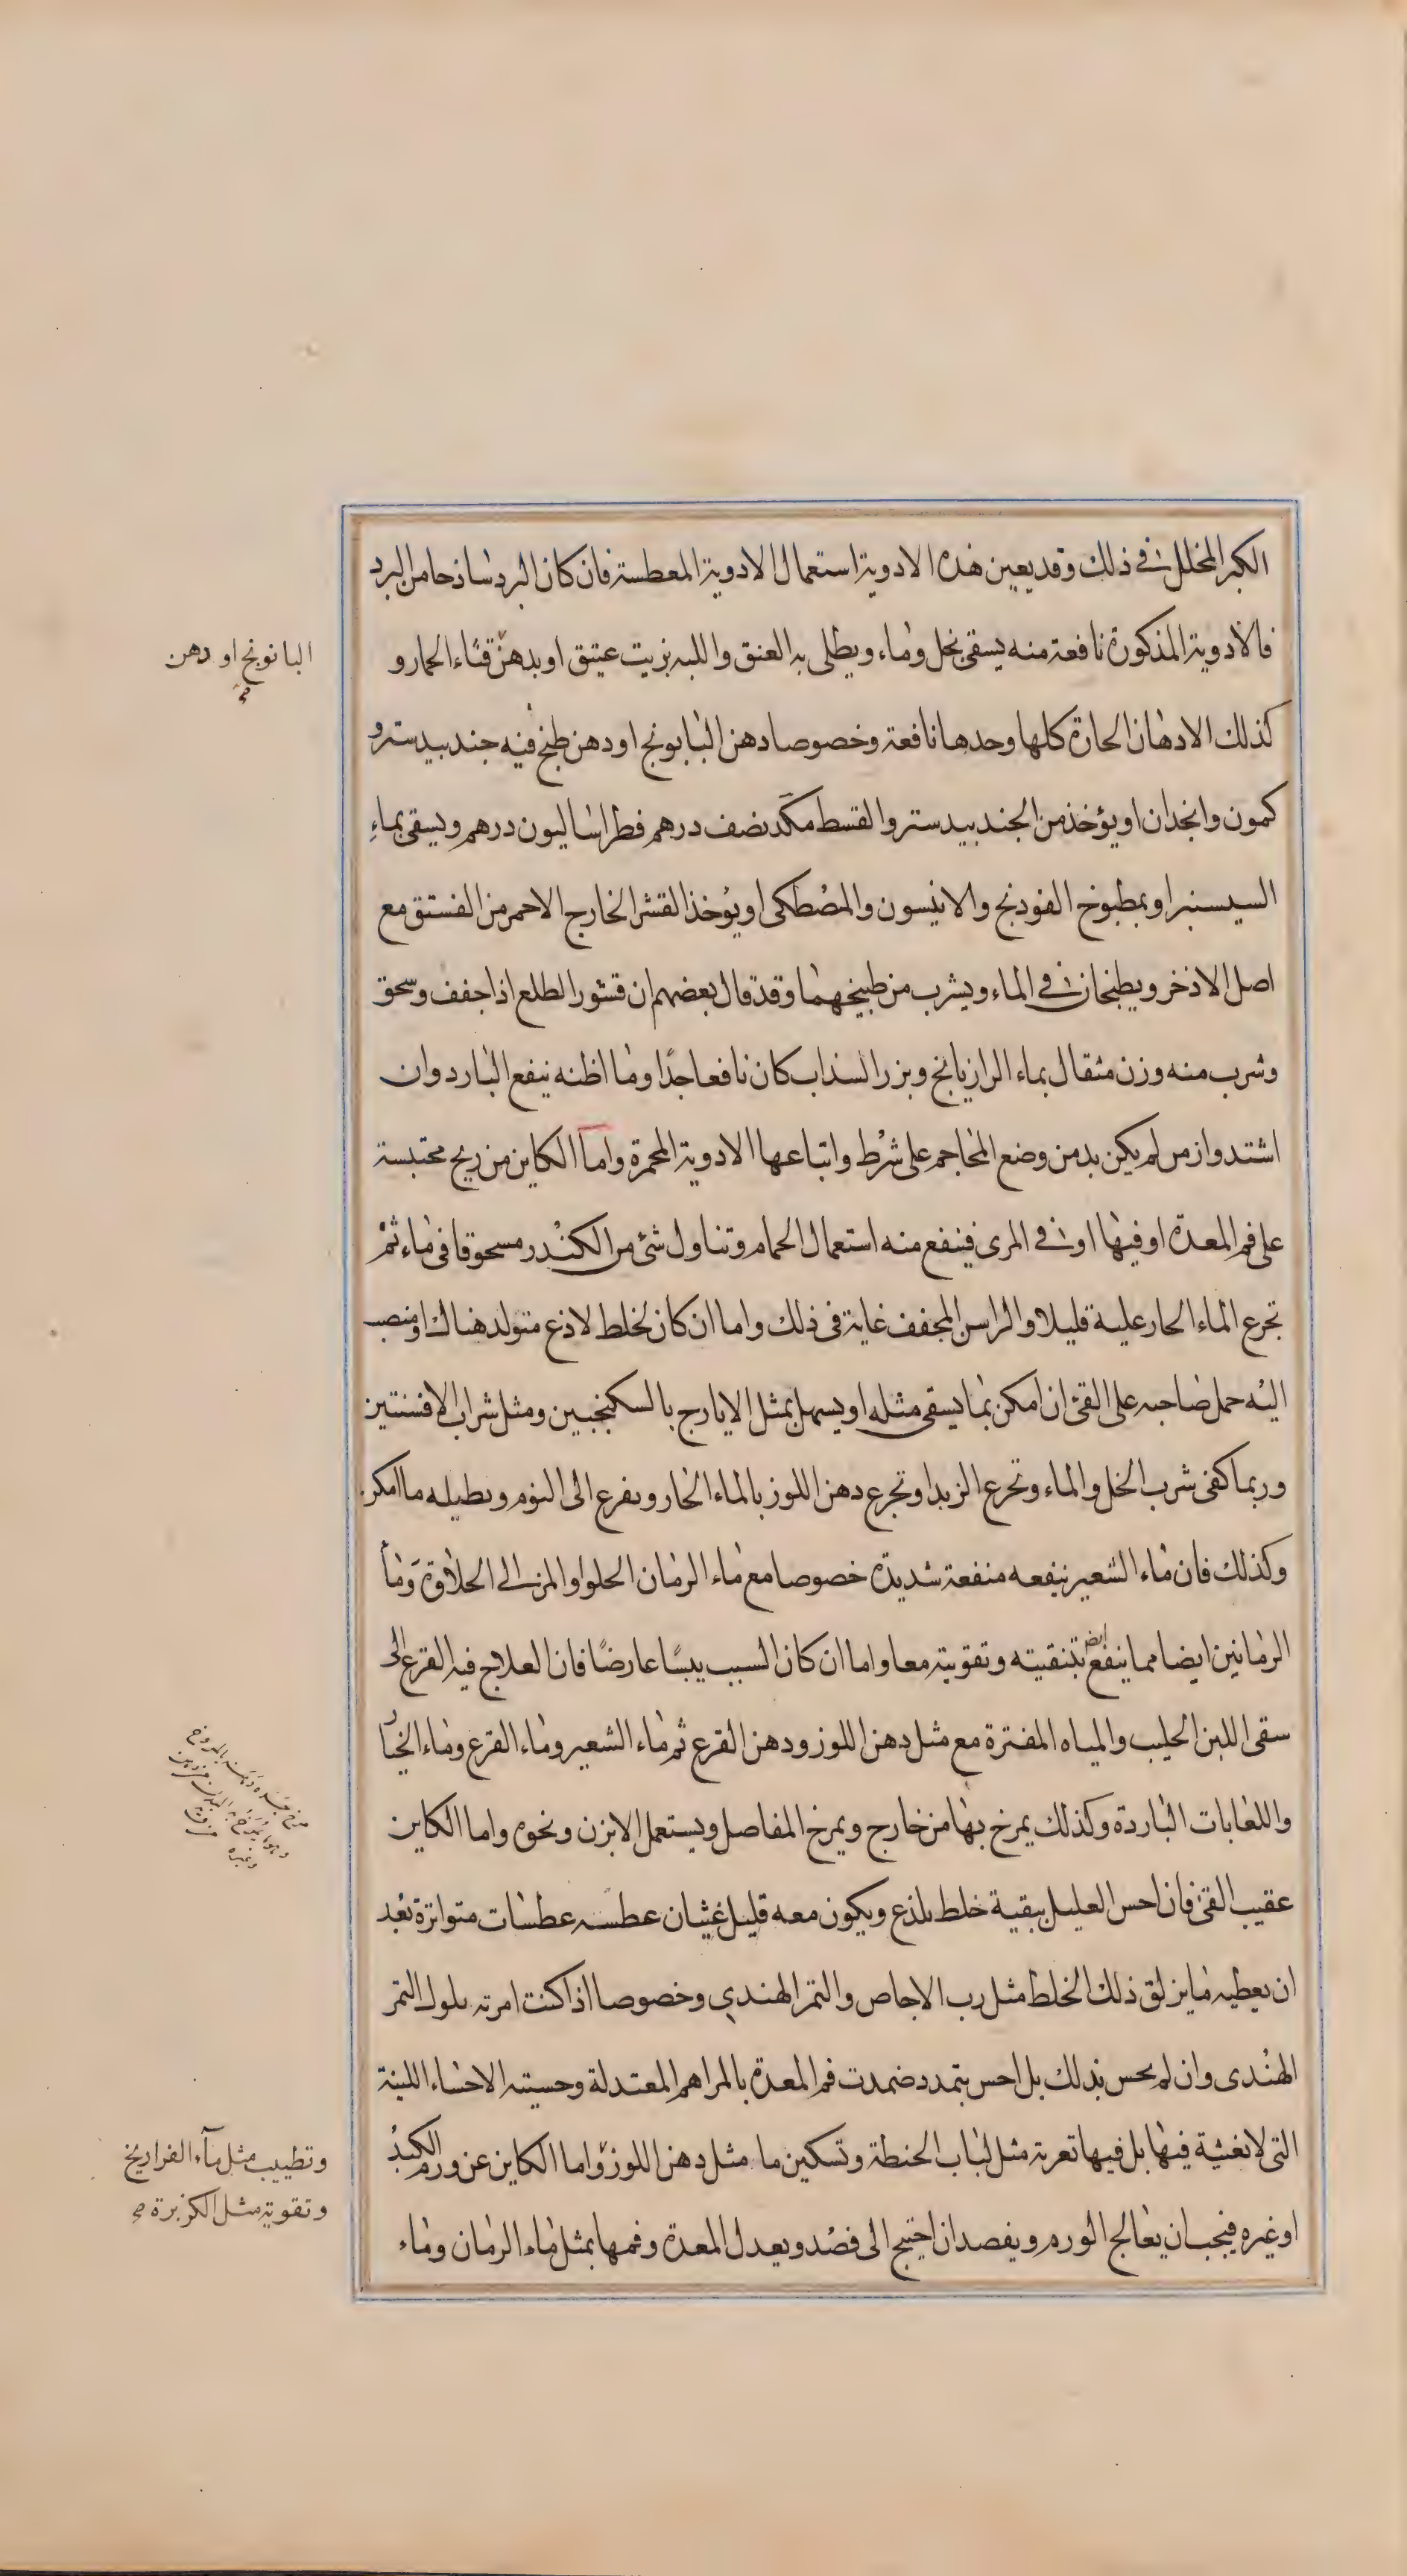 الكبر المخلل في ذلك وقد يعين هذه الادوية استعمال الادوية المعطسة فان كان البرد ساذجا من البرد
فالادوية المذكورة نافعة منه يسقى بخل وماء ويطلى به العنق واللبه بزيت عتيق او بدهن قثاء الحمار و
كذلك الادهان الحارة كلها وحدها نافعة وخصوصا دهن البابونج او دهن طبخ فيه جندبيدستر و
كمون وانجذان او يؤخذ من الجندبيدستر والقسط مكد نصف درهم فطراساليون درهم ويسقى بماء
السيسنبر او بمطبوخ الفودنج والانيسون والمصطكى او يؤخذ القشر الخارج الاحمر من الفستق مع
اصل الاذخر ويطبخان في الماء ويشرب من طبيخهما وقد قال بعضهم ان قشور الطلع اذا جفف وسحق
وشرب منه وزن مثقال بماء الرازيانج وبزر السذاب كان نافعا جدًا وما اظنه ينفع البارد وان
اشتد وازمن لم يكن بد من وضع المحاجم على شرط واتباعها الادوية المحمرة واما الكاين من ريح محتبسة
على فم المعدة او فيها او في المرى فينفع منه استعمال الحمام وتناول شئ من الكندر مسحوقا فى ماء ثم
تجرع الماء الحار عليه قليلا والراسن المجفف غاية فى ذلك واما ان كان لخلط لاذع متولد هناك او منصب
اليه حمل صاحبه على القئ ان امكن بما يسقى مثله او يسهل بمثل الايارج بالسكنجبين ومثل شراب الافسنتين
وربما كفى شرب الخل والماء وتجرع الزبد او تجرع دهن اللوز بالماء الحار ويفرع الى النوم ويطيله ما امكن
وكذلك فان ماء الشعير ينفعه منفعة شديدة خصوصا مع ماء الرمان الحلو او المز الى الحلاوة وماء
الرمانين ايضا مما ينفع ايض بتنقيته وتقويته معا واما ان كان السبب يبسًا عارضًا فان العلاج فيه الفزع الى
سقى اللبن الحليب والمياه المفترة مع مثل دهن اللوز ودهن القرع ثم ماء الشعير وماء القرع وماء الخيار
واللعابات الباردة وكذلك يمرخ بها من خارج ويمرخ المفاصل ويستعمل الابزن ونحوه واما الكاين
عقيب القئ فان احس العليل ببقية خلط يلذع ويكون معه قليل غثيان عطسه عطسات متواترة بعد
ان يعطيه ما يزلق ذلك الخلط مثل رب الاجاص والتمر الهندي وخصوصا اذا كنت امرته بلوك التمر
الهندى وان لم يحس بذلك بل احس بتمدد ضمدت فم المعدة بالمراهم المعتدلة وحسيته الاحساء اللينة
التى لا تغثية فيها بل فيها تغرية مثل لباب الحنطة وتسكين ما مثل دهن اللوز واما الكاين عن ورم الكبد
او غيره فيجب ان يعالج الورم ويفصد ان احتيج الى فصد ويعدل المعدة وفمها بمثل ماء الرمان وماء
البابونج او دهن
صح
وتطييب مثل مآء الفراريج
وتقوية مثل الكزبرة صح